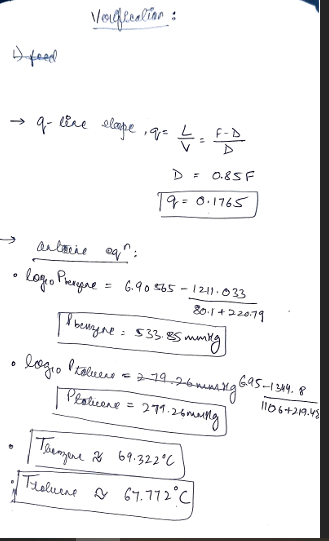 Verification :
1) feed
→ q-line slope, q = L/V = F-D/D
D = 0.85F
q = 0.1765
→ Antoine eqⁿ:
• log₁₀ Pbenzene = 6.90565 - 1211.033/80.1+220.79
Pbenzene = 533.85 mmHg
• log₁₀ Ptoluene = 279.26mmHg 6.95-1344.8/110.6+219.48
Ptoluene = 279.26mmHg
• Tbenzene ≈ 69.322°C
• Ttoluene ≈ 67.772°C